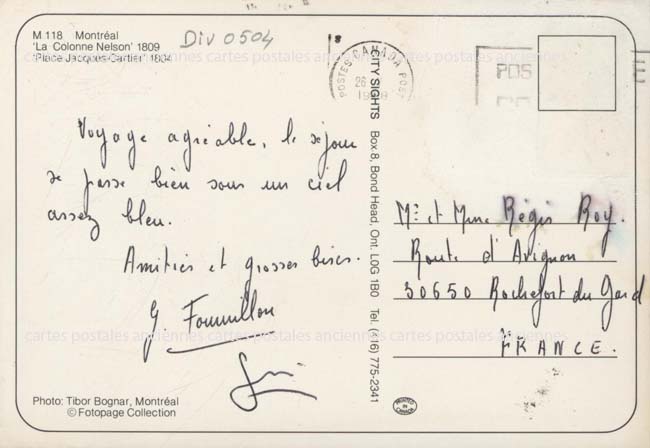 M 118 Montréal
'La Colonne Nelson' 1809
'Place Jacques-Cartier' 1804
Div 0504
cartes postales anciennes cartes postales anciennes cartes postales anciennes
Voyage agréable, le séjour
se passe bien sous un ciel
assez bleu.
Amitiés et grosses bises.
G.
Photo: Tibor Bognar, Montréal
© Fotopage Collection
CITY SIGHTS Box 8, Bond Head, Ont. L0G 1B0 Tel. (416) 775-2341
POSTES CANADA POST
26
POS
Mr et Mme Régis Roy.
Route d'Avignon
30650 Rochefort du Gard
FRANCE.
cartes postales anciennes cartes postales anciennes cartes postales anciennes
PRINTED IN CANADA